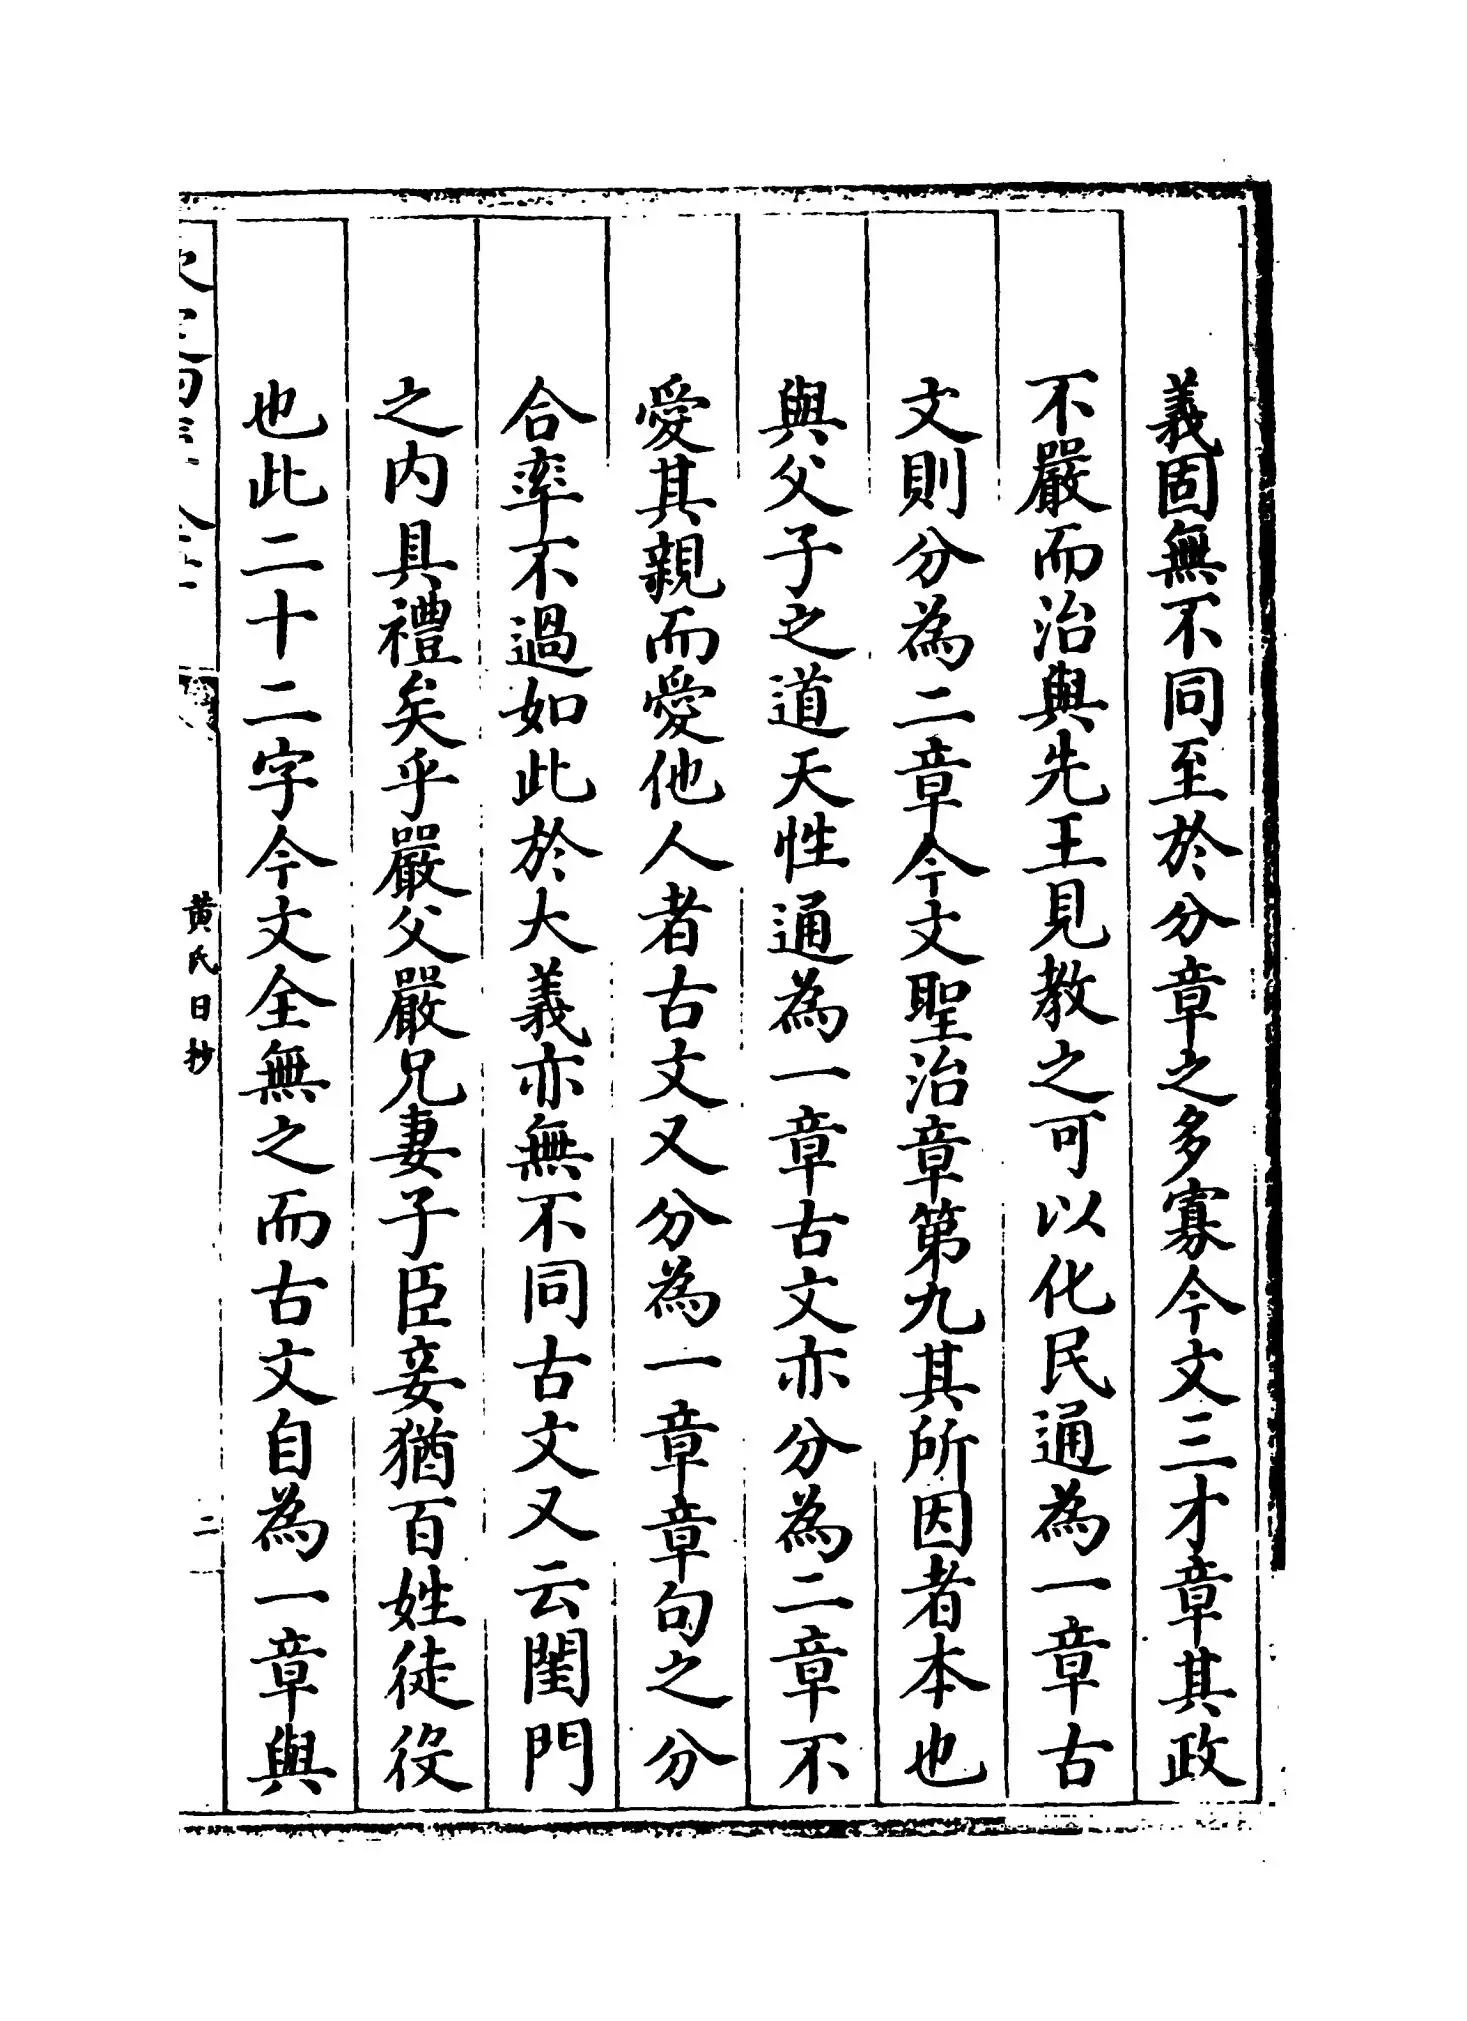 義固無不同至於分章之多寡今文三才章其政
不嚴而治與先王見教之可以化民通為一章古
文則分為二章今文聖治章第九其所因者本也
與父子之道天性通為一章古文亦分為二章不
愛其親而愛他人者古文又分為一章章句之分
合率不過如此於大義亦無不同古文又云閨門
之内具禮矣乎嚴父嚴兄妻子臣妾猶百姓徒役
也此二十二字今文全無之而古文自為一章與
黄氏日抄
二